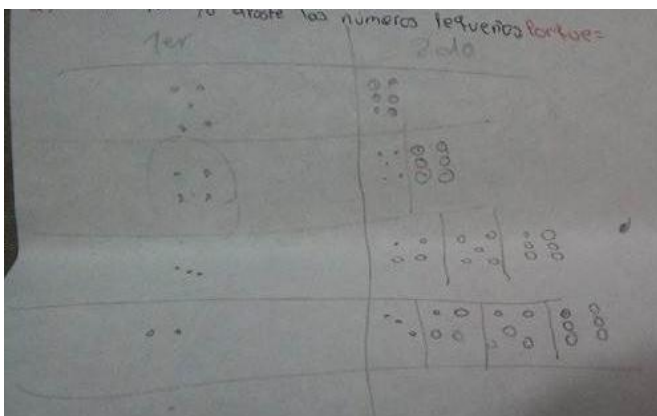 los números pequeños Porque=
1er 2do